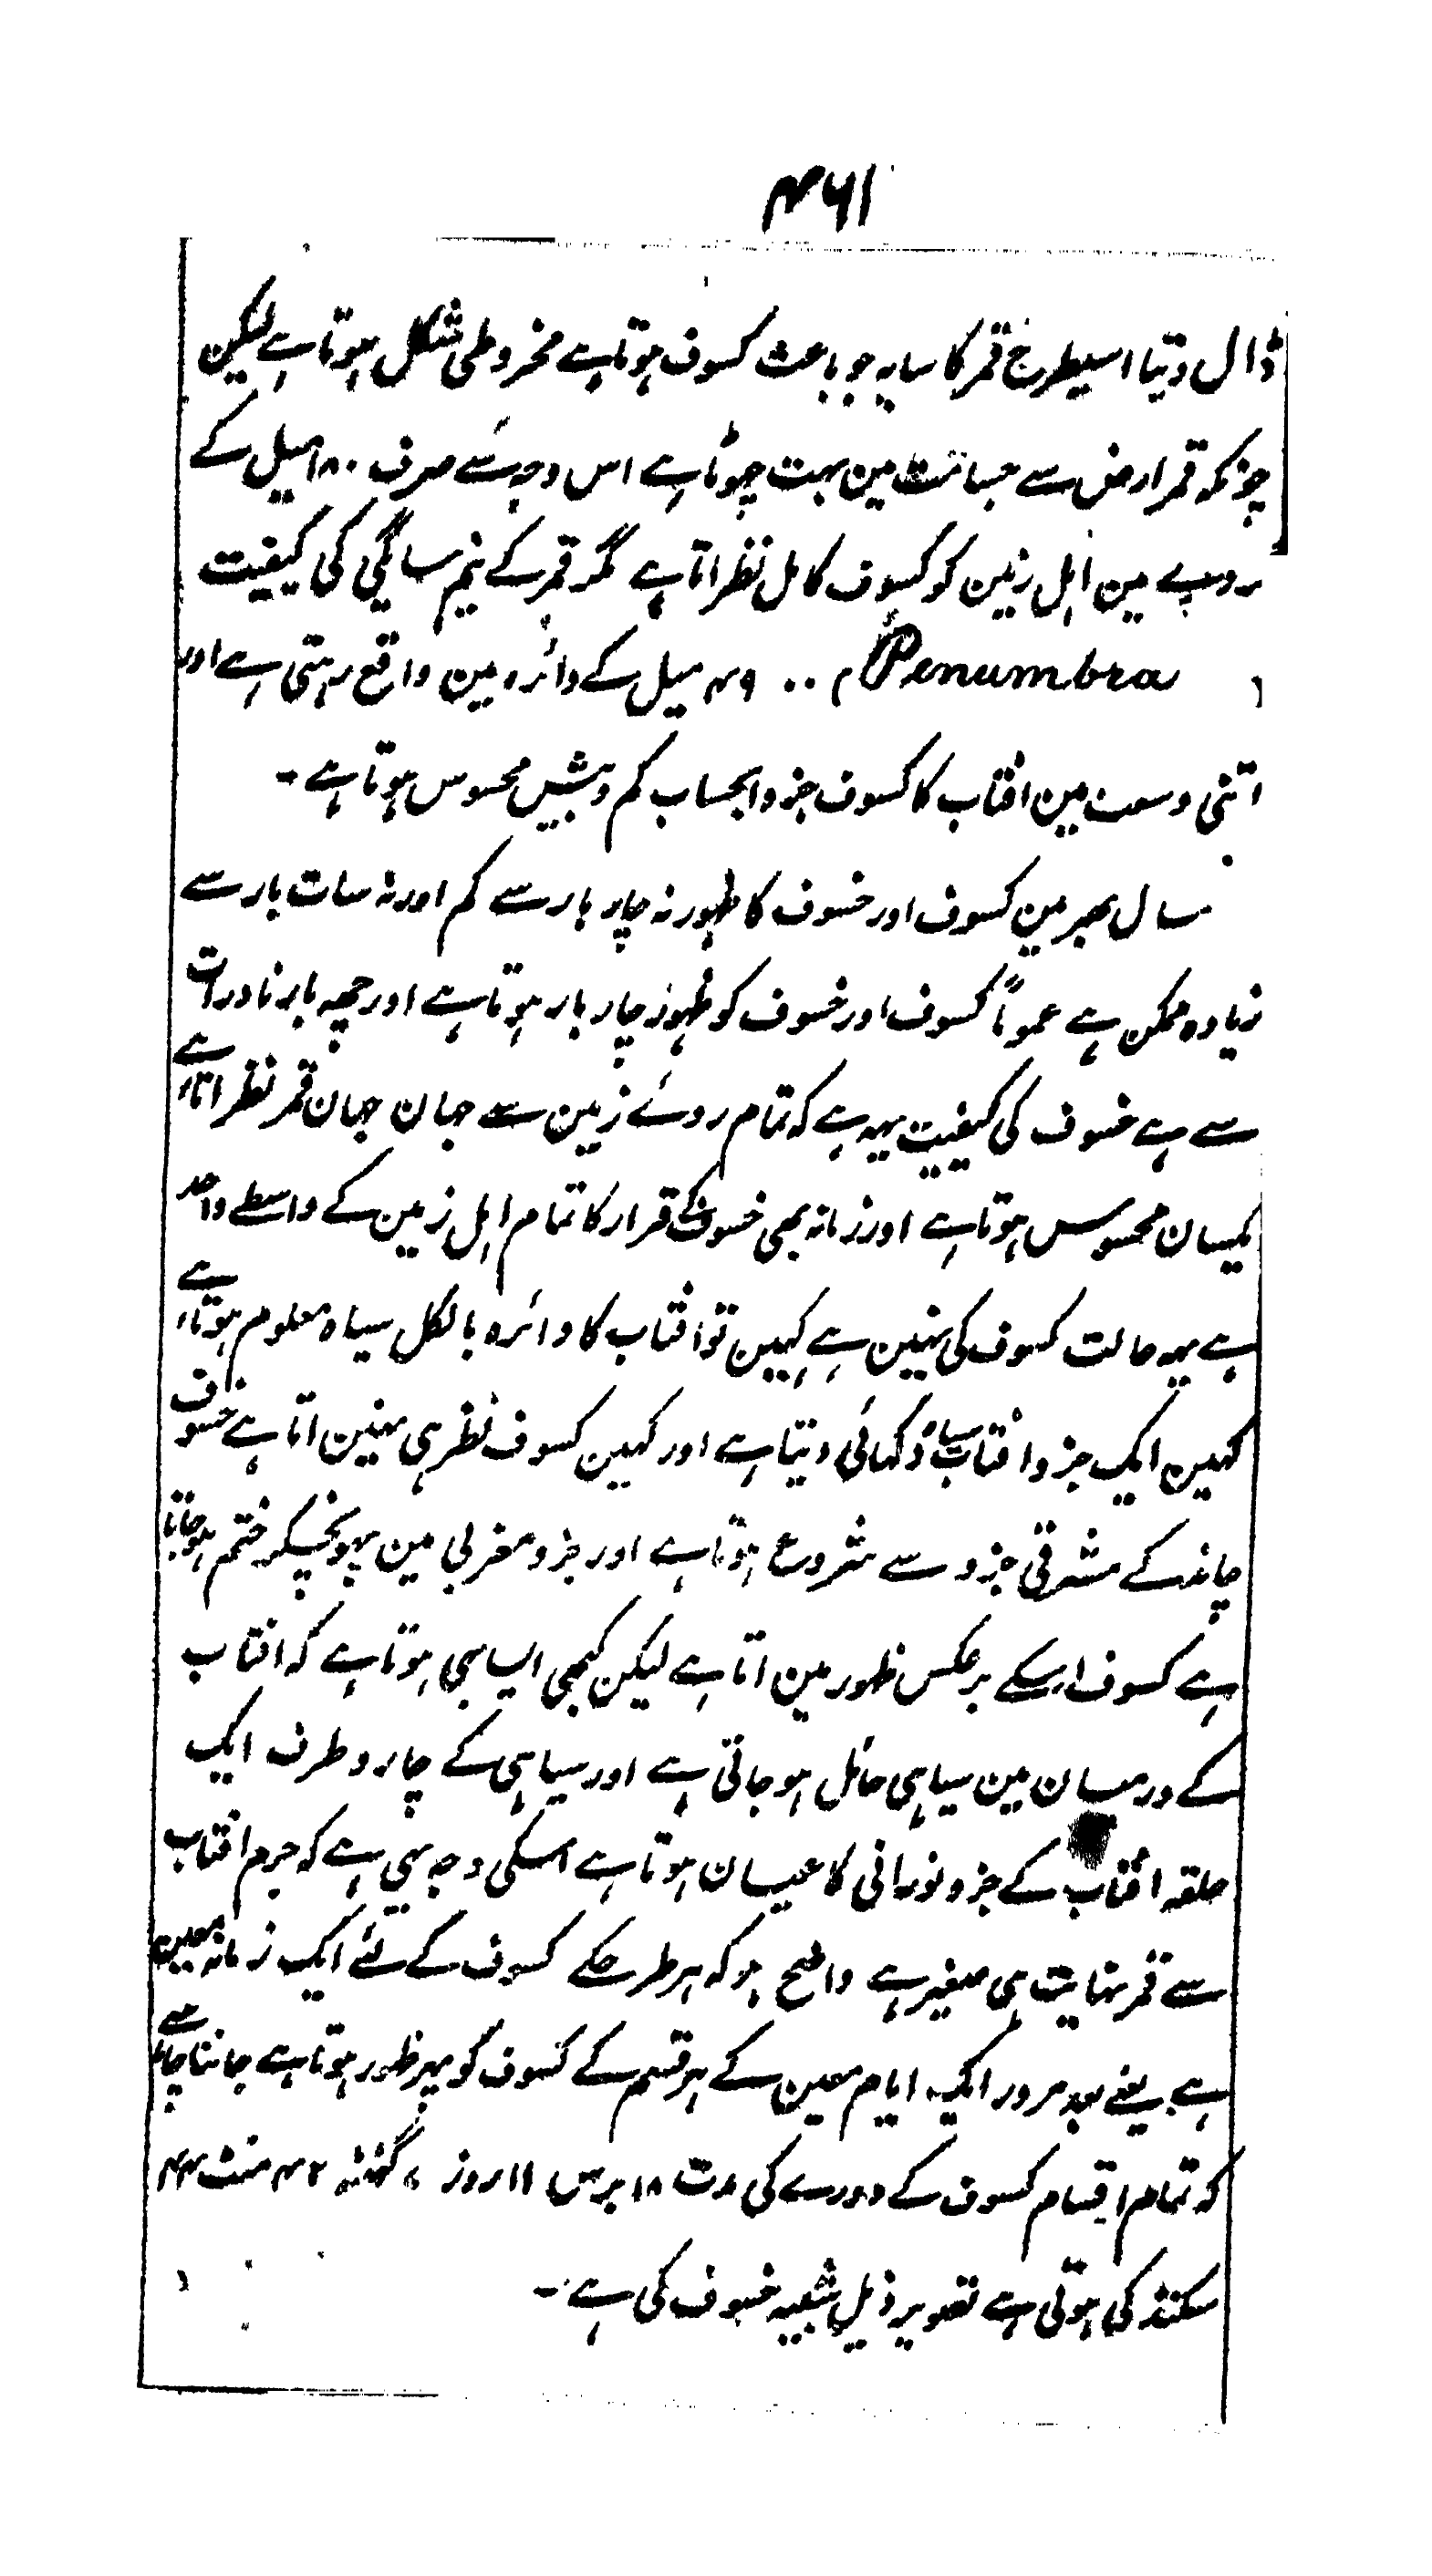 ۴۶۱
ڈال دیتا اسیطرح قمر کا سایہ جو باعث کسوف ہوتا ہے مخروطی شکل ہوتا ہے لیکن
چونکہ قمر ارض سے جسامت مین بہت چہوٹا ہے اس وجہ سے صرف ۱۸۰ میل کے
مین اہل زمین کو کسوف کامل نظر اتا ہے مگر قمر کے نیم سایگی کی کیفیت
Penumbra ۴۹۰۰ میل کے دائرہ مین واقع رہتی ہے اور
اتنی وسعت مین افتاب کا کسوف جزو بحساب کم و بیش محسوس ہوتا ہے ۔
سال بھر مین کسوف اور خسوف کا ظہور نہ چار بار سے کم اور نہ سات بار سے
زیادہ ممکن ہے عموماً کسوف اور خسوف کو ظہور چار بار ہوتا ہے اور چھہ بار نادرات
سے ہے خسوف کی کیفیت یہہ ہے کہ تمام روئے زمین سے جہان جہان قمر نظر اتا ہے
یکسان محسوس ہوتا ہے اور زمانہ بھی خسوف کے قرار کا تمام اہل زمین کے واسطے واحد
ہے یہہ حالت کسوف کی نہین ہے کہین تو افتاب کا دائرہ بالکل سیاہ معلوم ہوتا ہے
کہین ایک جزو افتاب سیاہ دکہائی دیتا ہے اور کہین کسوف نظر ہی نہین اتا ہے خسوف
چاند کے مشرقی جزو سے شروع ہوتا ہے اور جزو مغربی مین پہونچکر ختم ہوجاتا
ہے کسوف اسکے برعکس ظہور مین اتا ہے لیکن کبھی ایسا بھی ہوتا ہے کہ افتاب
کے درمیان مین سیاہی حائل ہو جاتی ہے اور سیاہی کے چارو طرف ایک
حلقہ افتاب کے جزو نورانی کا عیان ہوتا ہے اسکی وجہ یہی ہے کہ جرم افتاب
سے قمر نہایت ہی صغیر ہے واضح ہو کہ ہر طرحکے کسوف کے لئے ایک زمانہ معین
ہے یعنے بعد مرور ایک ایام معین کے ہر قسم کے کسوف کو پہر ظہور ہوتا ہے جاننا چاہئے
کہ تمام اقسام کسوف کے دورے کی مدت ۱۸ برس ۱۱ روز ۷ گھنٹہ ۴۲ منٹ ۴۴
سکنڈ کی ہوتی ہے تصویر ذیل شبیہ خسوف کی ہے ۔